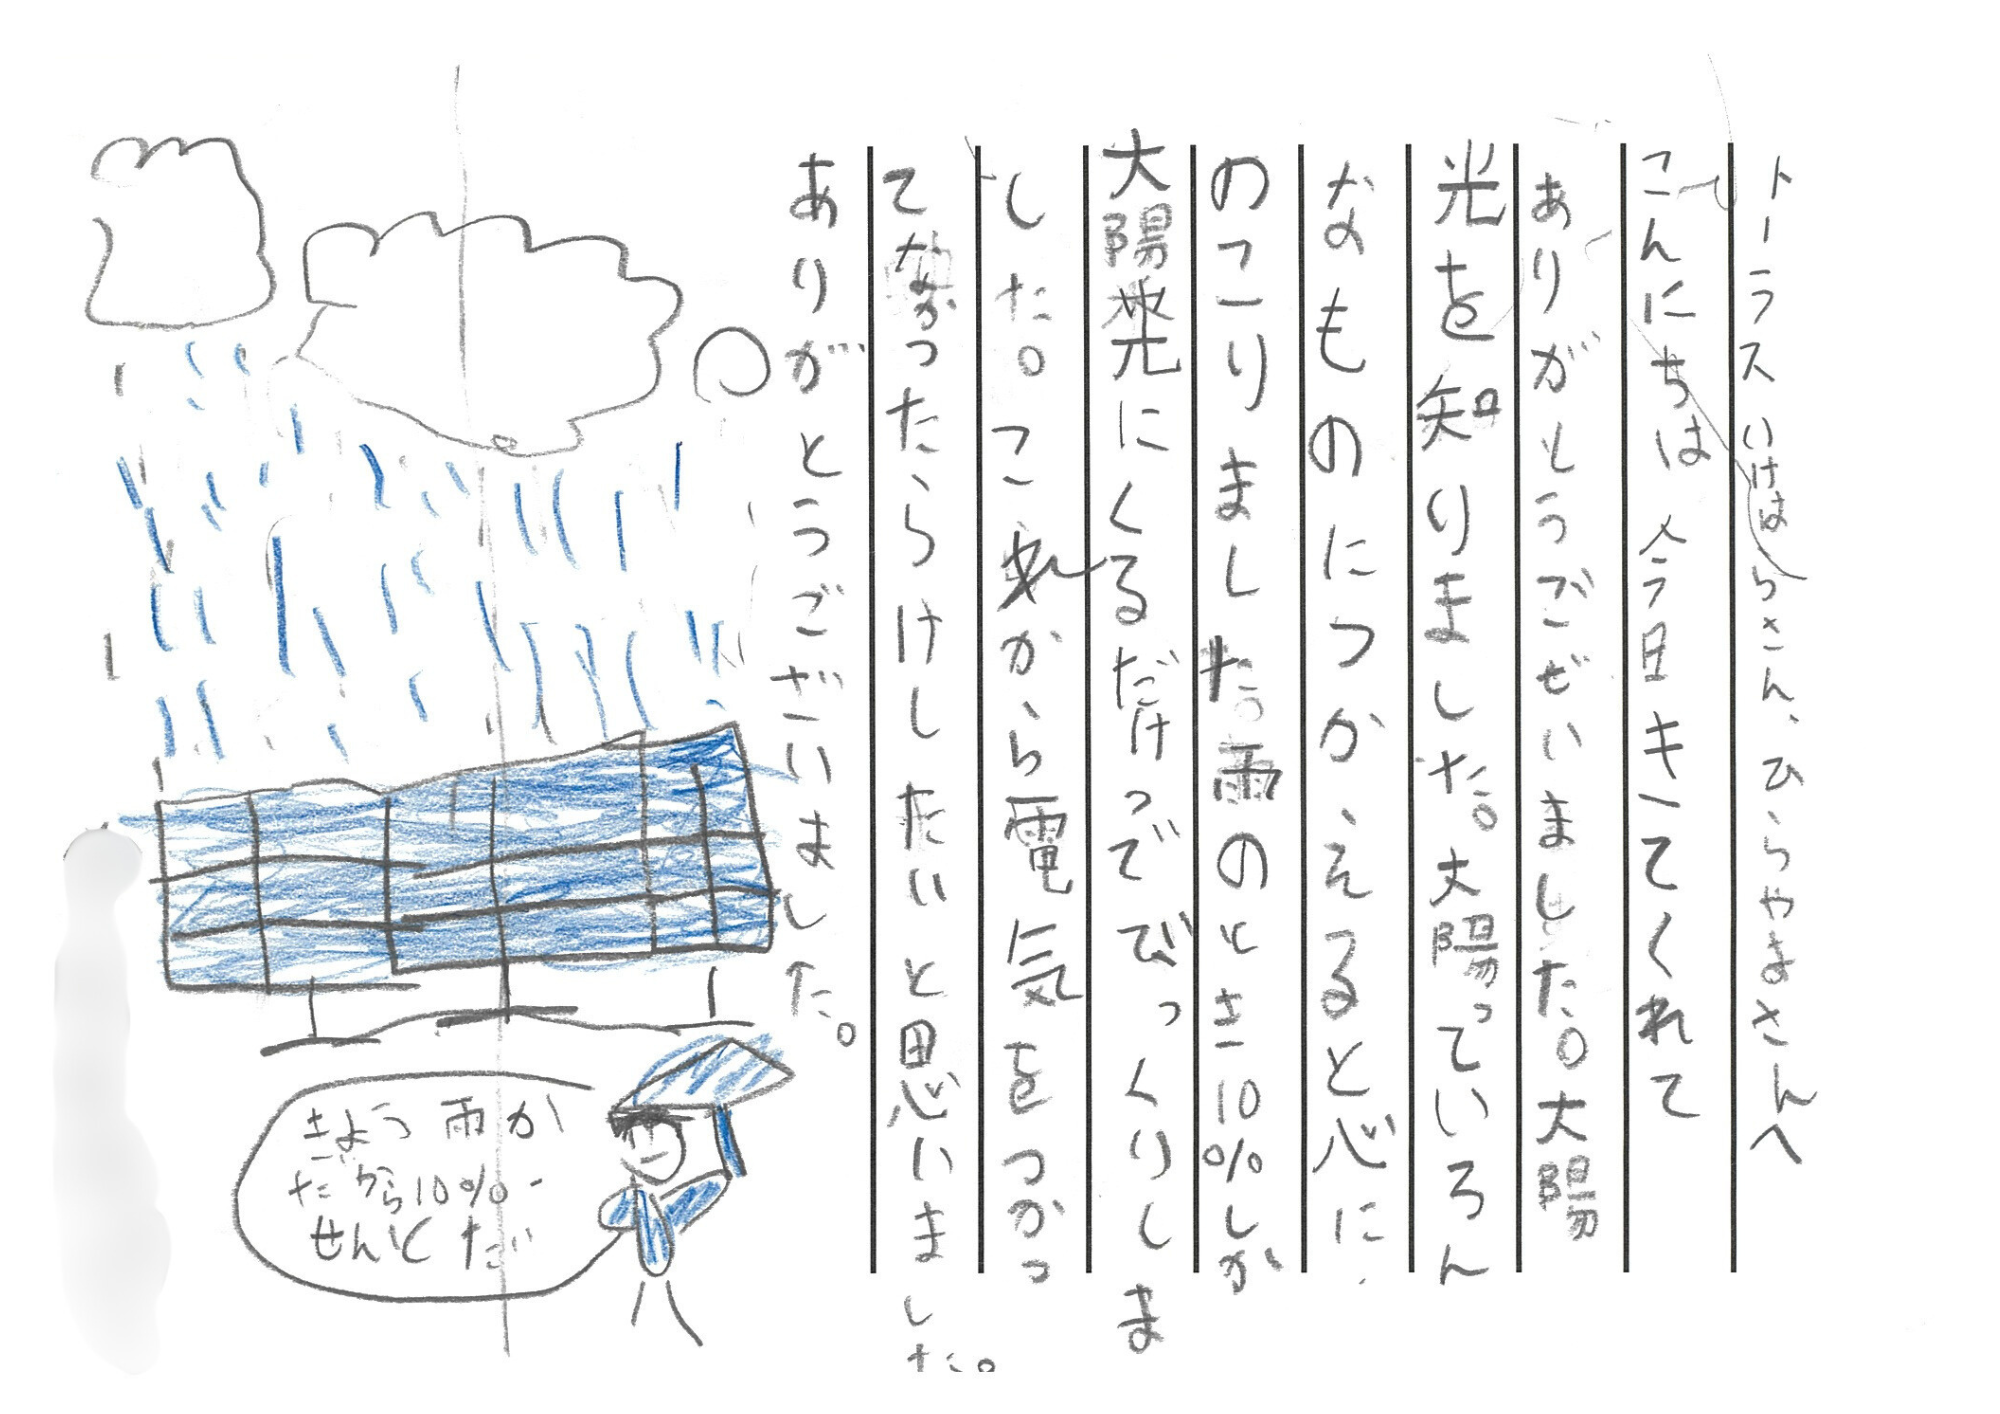 トーラスいけはらさん、ひらやまさんへ
こんにちは 今日キてくれて
ありがとうござぜいました。大陽
光を知りました。大陽っていろん
なものにつかえると心に
のこりました。雨のとき10%しか
大陽光にくるだけっでびっくりしま
した。これから電気をつかっ
てなかったらけしたいと思いました。
ありがとうございました。
きょう雨か
だから10%
せんとだ